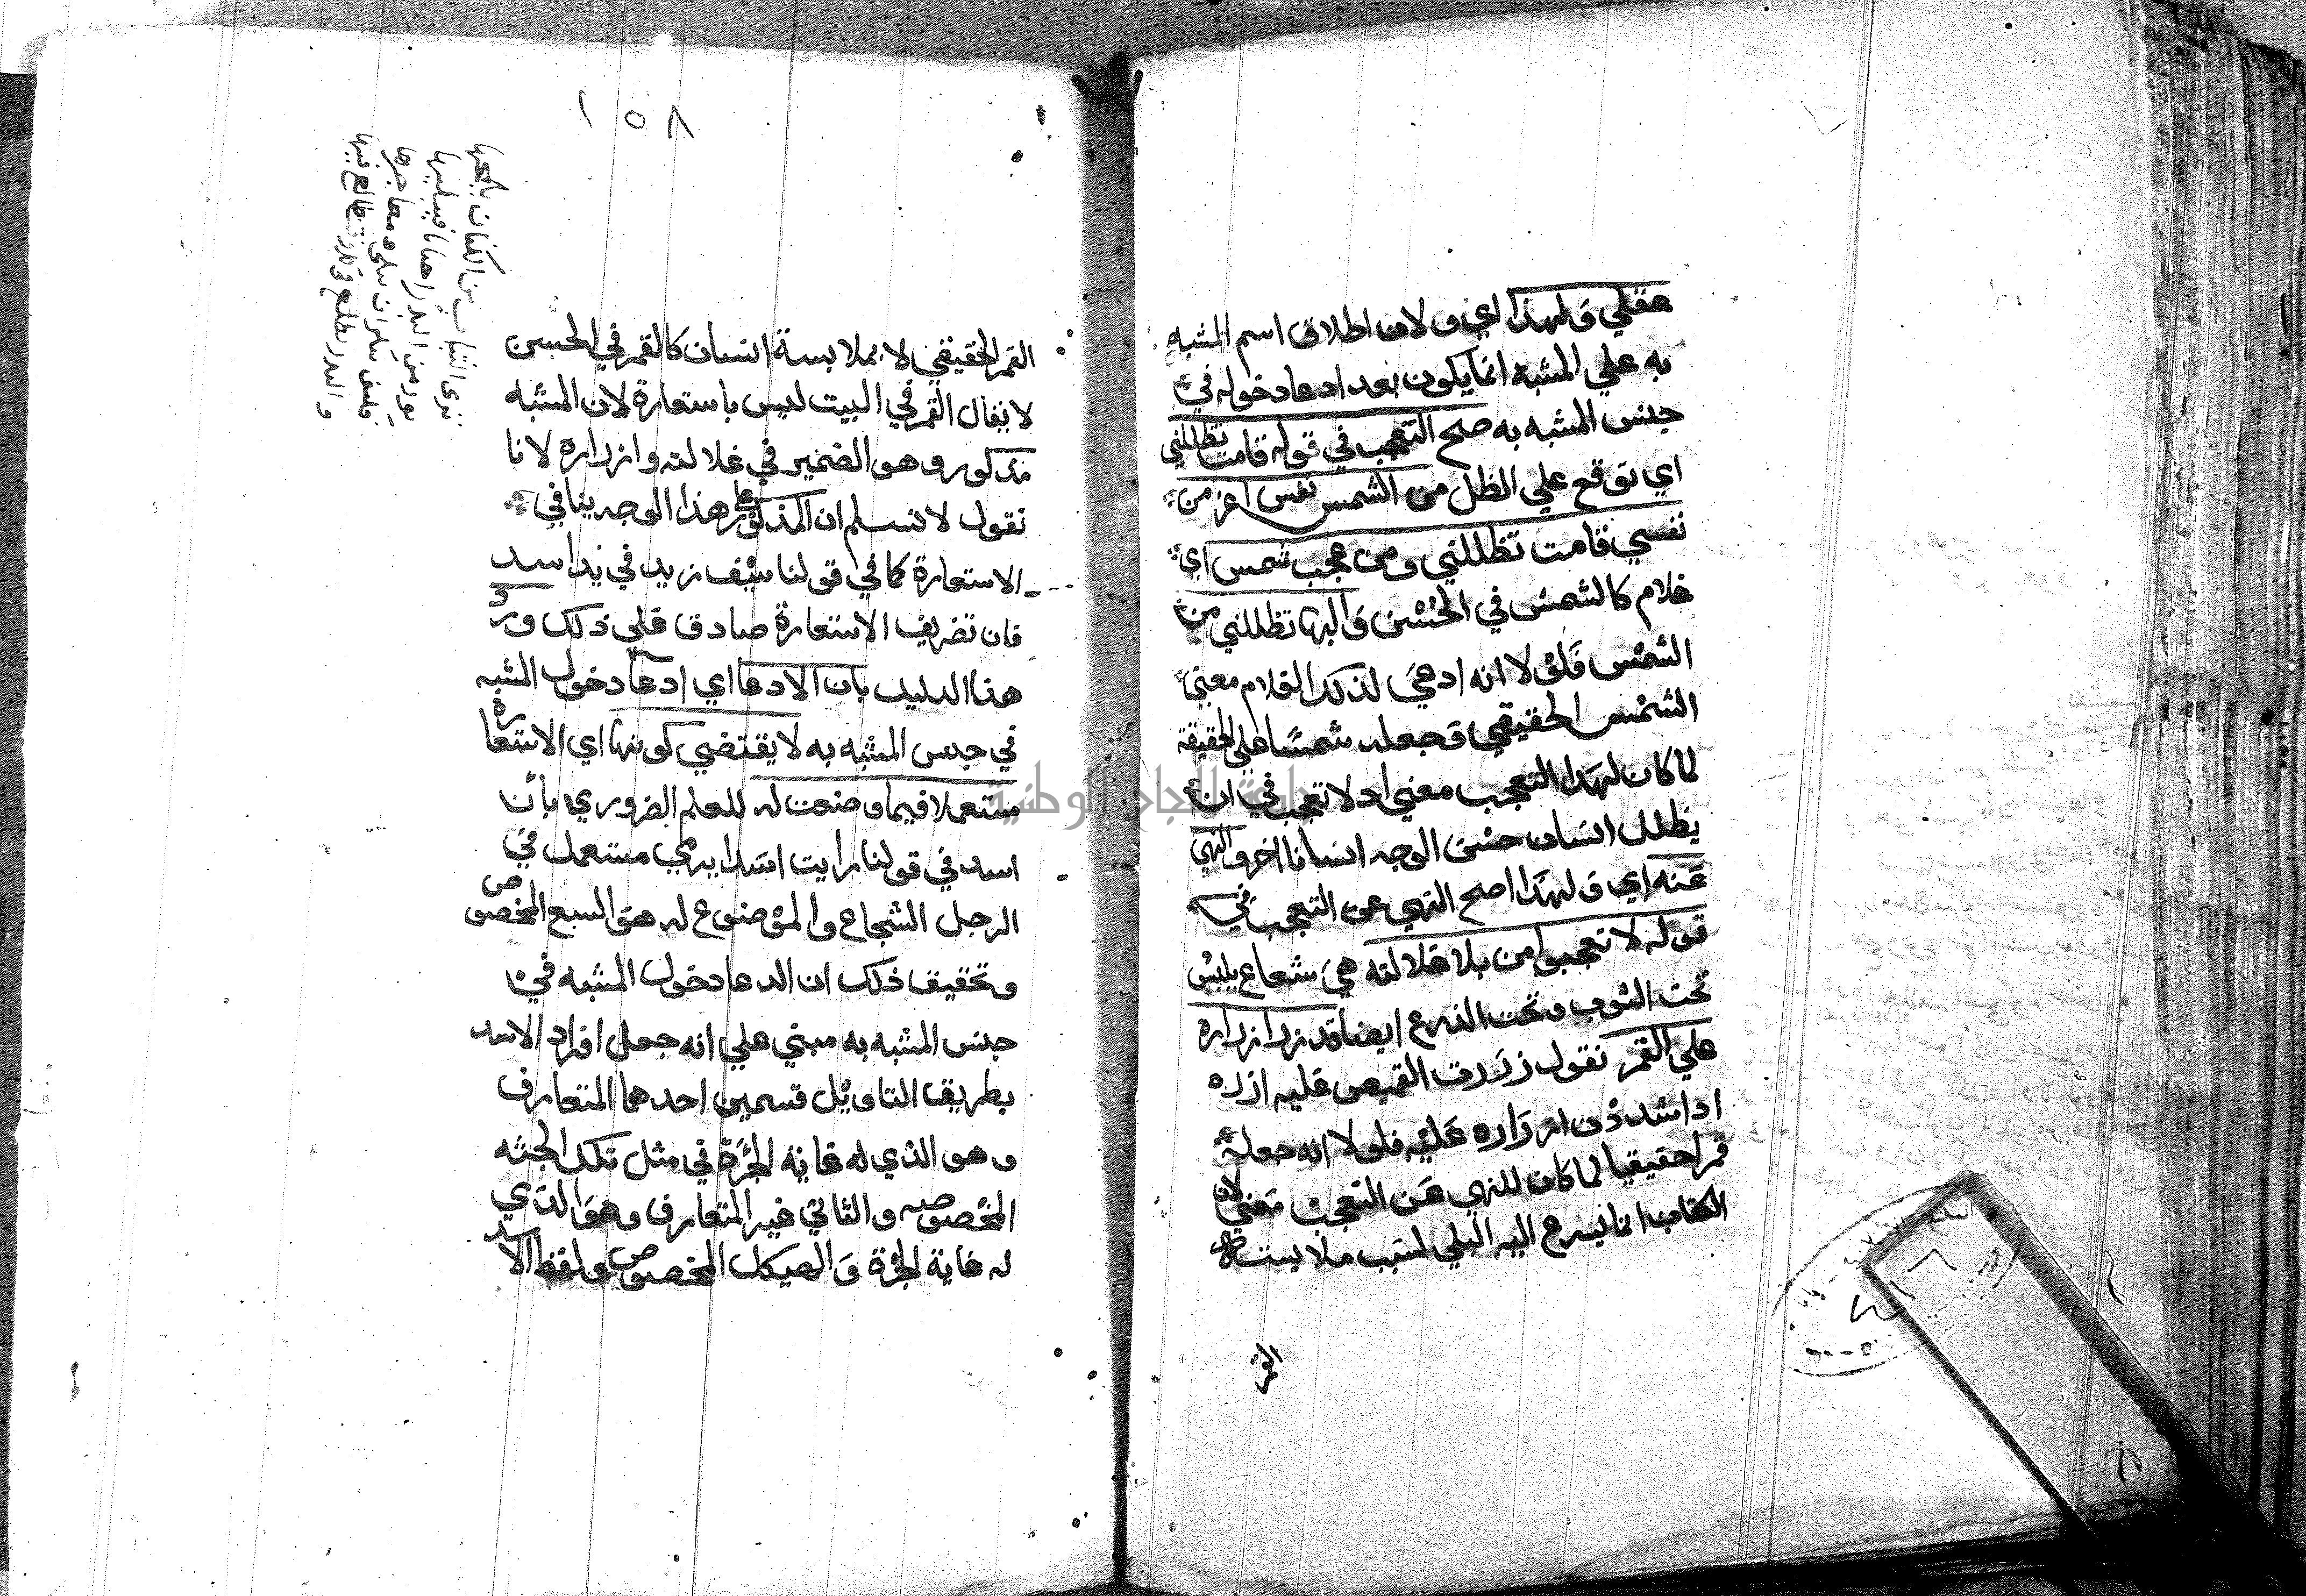 عقلي ولهذا اي ولان اطلاق اسم المشبه
به علي المشبه انما يكون بعد ادعا دخوله في
جنس المشبه به صلح التعجب في قوله قامت تظللني
اي توقع علي الظل من الشمس نفس اعز من
نفسي قامت تظللني ومن عجب شمس اي
غلام كالشمس في الحسن والبها تظللني من
الشمس فلولا انه ادعي لذلك الغلام معني
الشمس الحقيقي وجعله شمسا علي الحقيقة
لما كان لهذا التعجب معني اد لا تعجب في ان
يظلل انسان حسن الوجه انسانا اخر والنهي
عنه اي ولهذا صلح النهي عن التعجب في
قوله لا تعجبوا من بلا غلالته هي شعاع يلبس
تحت الثوب وتحت الدرع ايضا قد زر ازراره
علي القمر نقول زررت القميص عليه ازره
ادا شددت ازراره عليه فلولا انه جعله
قمرا حقيقيا لما كان للنهي عن التعجب معني لان
الكتاب انما يسرع اليه البلي لسبب ملابسته
القمر
١٥٨
القمر الحقيقي لا بملابسة انسان كالقمر في الحسن
لا يقال القمر في البيت ليس باستعارة لان المشبه
مدكور وهو الضمير في غلالته وازراره لانا
نقول لا نسلم ان الذكر علي هذا الوجه ينافي
الاستعارة كما في قولنا سيف زيد في يد اسد
فان تعريف الاستعارة صادق علي ذلك ورد
هذا الدليل بان الادعا اي ادعا دخول المشبه
في جنس المشبه به لا يقتضي كونها اي الاستعارة
مستعملا فيما وضعت له للعلم الضروري بان
اسد في قولنا رايت اسدا يرمي مستعمل في
الرجل الشجاع والموضوع له هو السبع المخصوص
وتحقيق ذلك ان الدعا دخول المشبه في
جنس المشبه به مبني علي انه جعل افراد الاسد
بطريق التاويل قسمين احدهما المتعارف
وهو الذي له غاية الجرة في مثل تلك الجثه
المخصوصه والثاني غير المتعارف وهو الذي
له غاية الجرة والهيكل المخصوص ولفظ الاسد
تري الثياب من الكتان يلمحها
نور من البدر احيانا فيبليها
فكيف تنكر ان تبلي معاجرها
والبدر في كل وقت طالع فيها